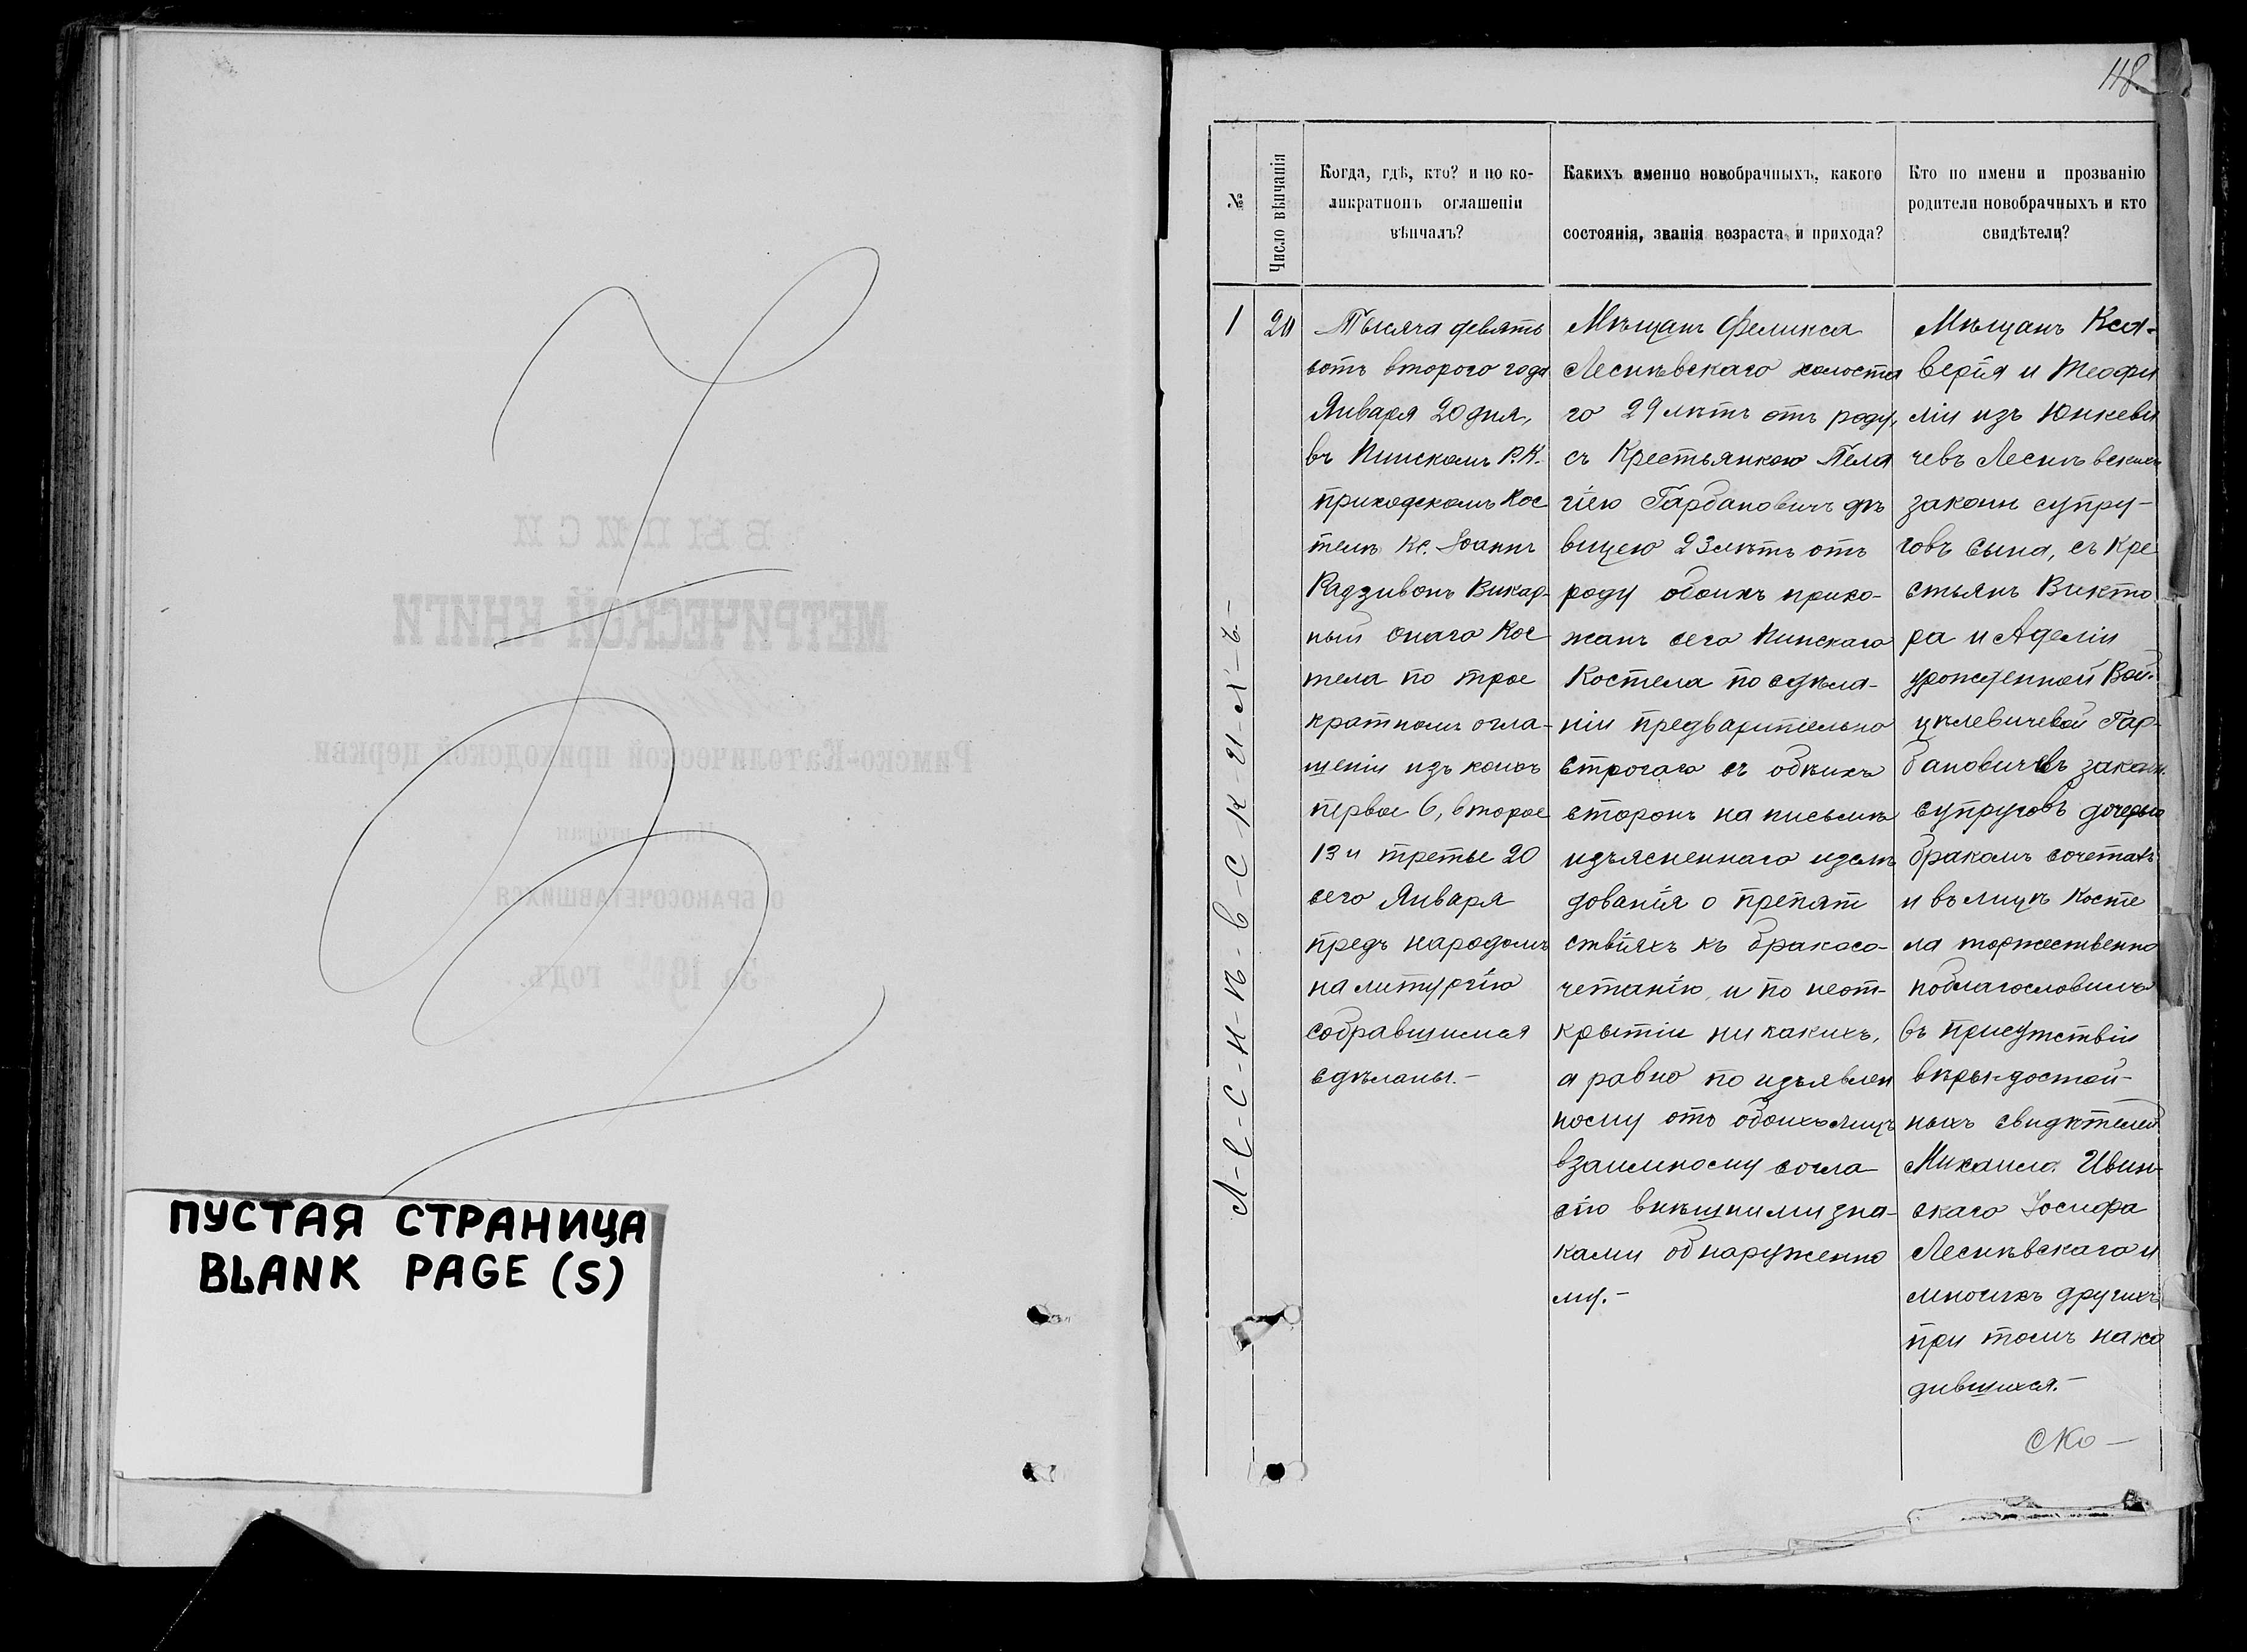 ПУСТАЯ СТРАНИЦА
BLANK PAGE (S)
118
№
Число вѣнчанія
Когда, гдѣ, кто? и по ко-
ликратномъ оглашеніи
вѣнчалъ?
Каких​ъ именно новобрачныхъ, какого
состоянія, званія возраста и прихода?
Кто по имени и прозванію
родители новобрачныхъ и кто
свидѣтели?
1
20
Л-е-с-н-ѣ-в-с-к-и-й-
Тысяча девять
сотъ второго года
Января 20 дня,
въ Пинскомъ Р.К.
приходскомъ Кос
телѣ Кс. Іоаннъ
Радзивонъ Викар-
ный онаго Кос
тела по трое
кратномъ огла-
шеніи изъ коихъ
первое 6, второе
13 и третье 20
сего Января
предъ народомъ
на литургію
собравшимся
сдѣланы.-
Мѣщанъ Феликса
Леснѣвскаго холоста
го 29 лѣтъ отъ роду,
съ Крестьянкою Пела
гіею Гарбановичъ дѣ
вицею 23 лѣтъ отъ
роду обоихъ прихо-
жанъ сего Пинскаго
Костела по сдѣла-
ніи предварительно
строгаго съ обѣихъ
сторонъ на письмѣ
изъясненнаго изслѣ
дованія о препят
ствіяхъ къ бракосо-
четанію, и по неот-
крытіи ни какихъ,
а равно по изъявлен
ному отъ обоихъ лицъ
взаимному согла-
сію внѣшними зна-
ками обнаруженно
му.-
Мѣщанъ Кса-
верія и Теофи
ліи изъ Юнкеви
чевъ Леснѣвскихъ
законн супру-
говъ сына, съ Кре
стьянъ Викто
ра и Аделіи
урожденной Вой-
цѣлевичевой Гар-
бановичевъ законн.
супруговъ дочерью
бракомъ сочеталъ
и въ лицѣ Косте
ла торжественно
поблагословилъ
въ присутствіи
вѣры-достой-
ныхъ свидѣтелей
Михаила Ивин-
скаго Іосифа
Леснѣвскаго и
многихъ другихъ
при томъ нахо
дившихся.-